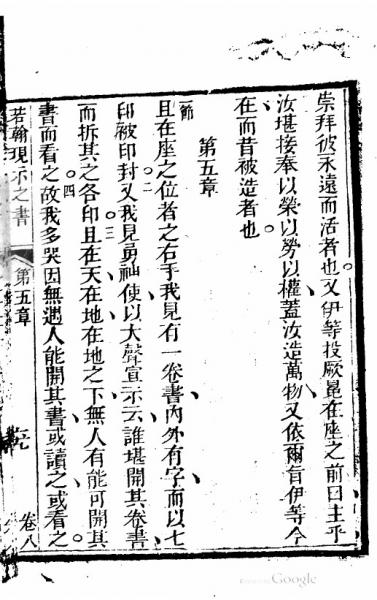 崇拜彼永遠而活者也。又伊等投厥冕在座之前曰主乎
汝堪接奉以榮以勞以權蓋汝造萬物又依爾旨伊等今
在而昔被造者也
第五章
一節
且在座之位者之右手我見有一卷書內外有字而以七
二
印被印封又我見勇神使以大聲宣示云誰堪開其卷書
三
而拆其之各印且在天在地在地之下無人有能可開其
四
書而看之故我多哭因無遇人能開其書或讀之或看之。
若翰現示之書
第五章
卷八
Google